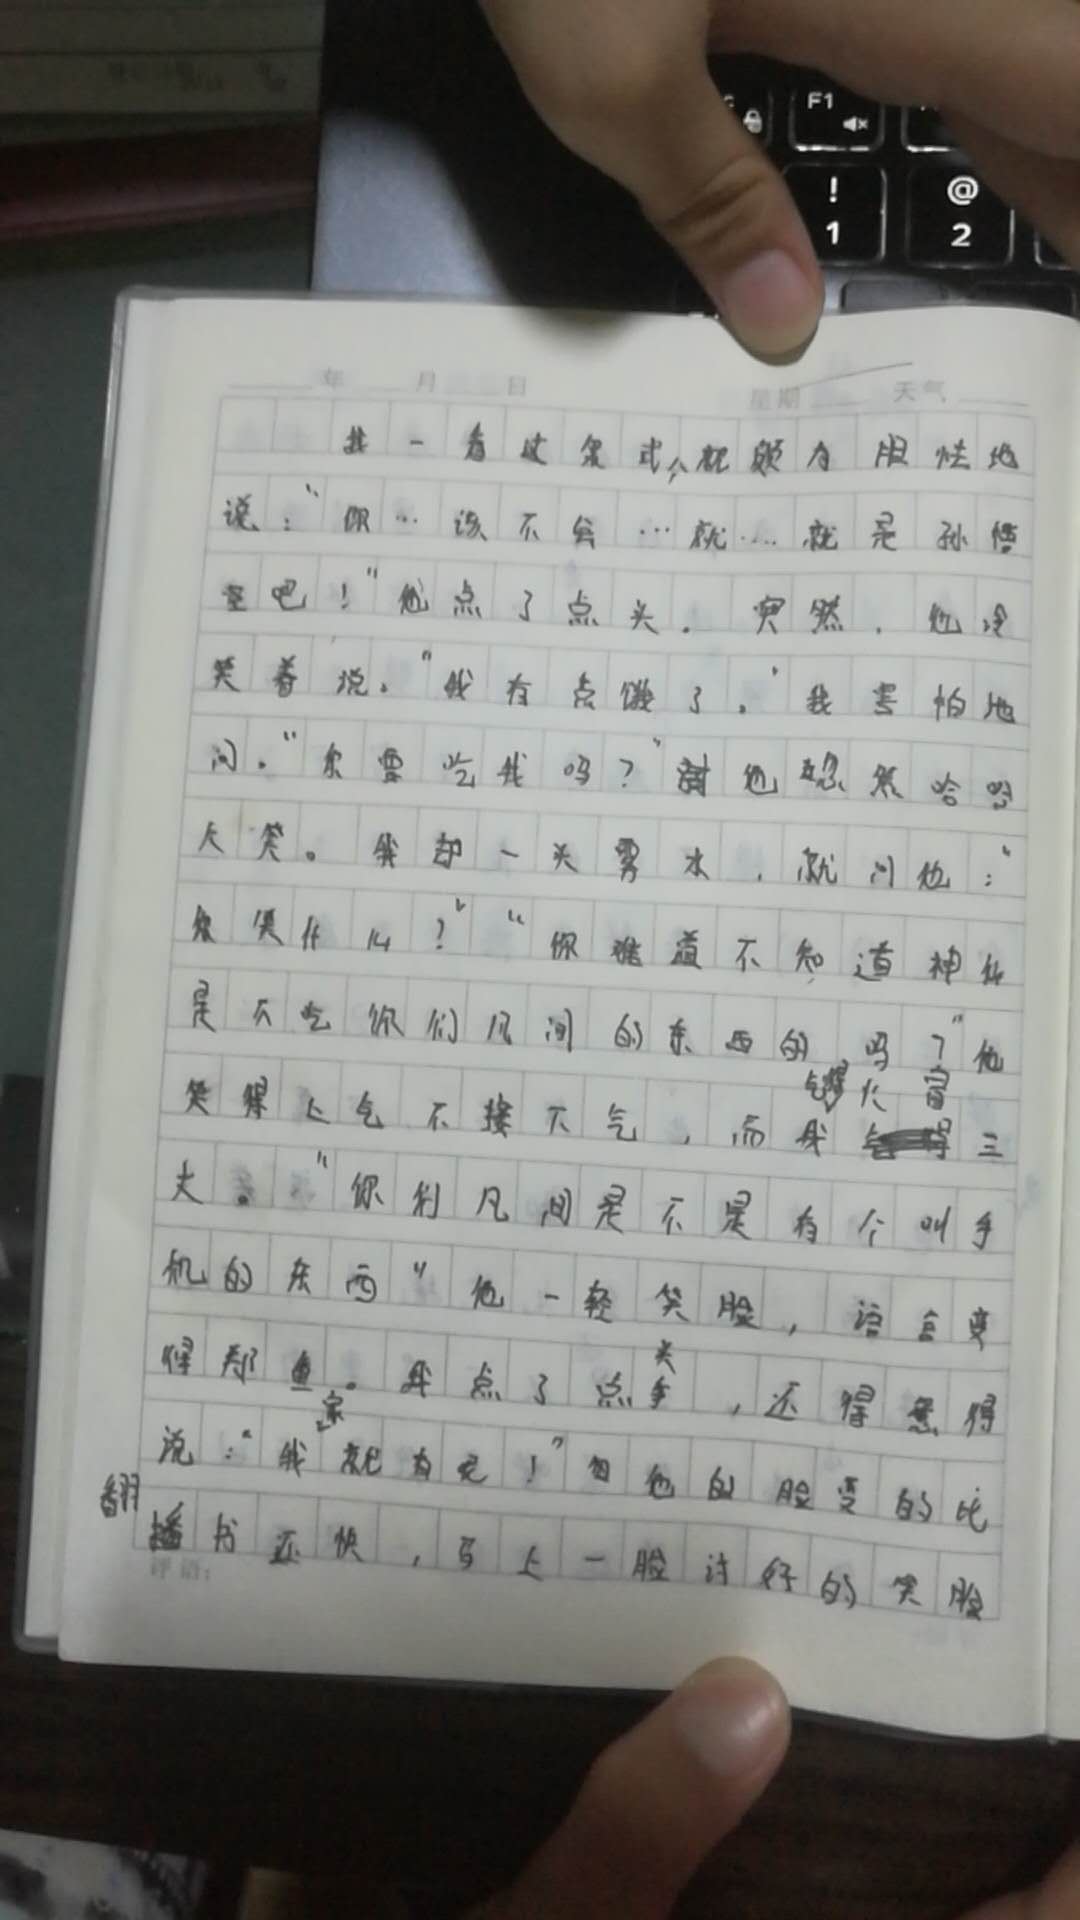 F1
! @
1 2
年 月 日 星期 天气
我一看这架式，就颇有胆怯地
说：“你…该不会…就…就是孙悟
空吧！”他点了点头。突然，他冷
笑着说。“我有点饿了。”我害怕地
问。“你要吃我吗？”他忽然哈哈
大笑。我却一头雾水，就问他：“
你笑什么？”“你难道不知道神仙
是不吃你们凡间的东西的吗？”他
笑得上气不接下气，而我气得火冒三
丈。“你们凡间是不是有个叫手
机的东西”他一轻笑脸，语言变
得那鱼。我点了点头，还得意得
说：“我家就有呢！”他的脸变的比
翻书还快，马上一脸讨好的笑脸
评语：